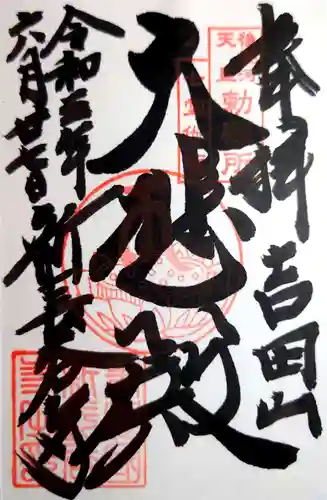 奉拝 吉田山
後堀河
天皇
勅願所
大悲殿
令和三年
六月廿七日
新長谷寺